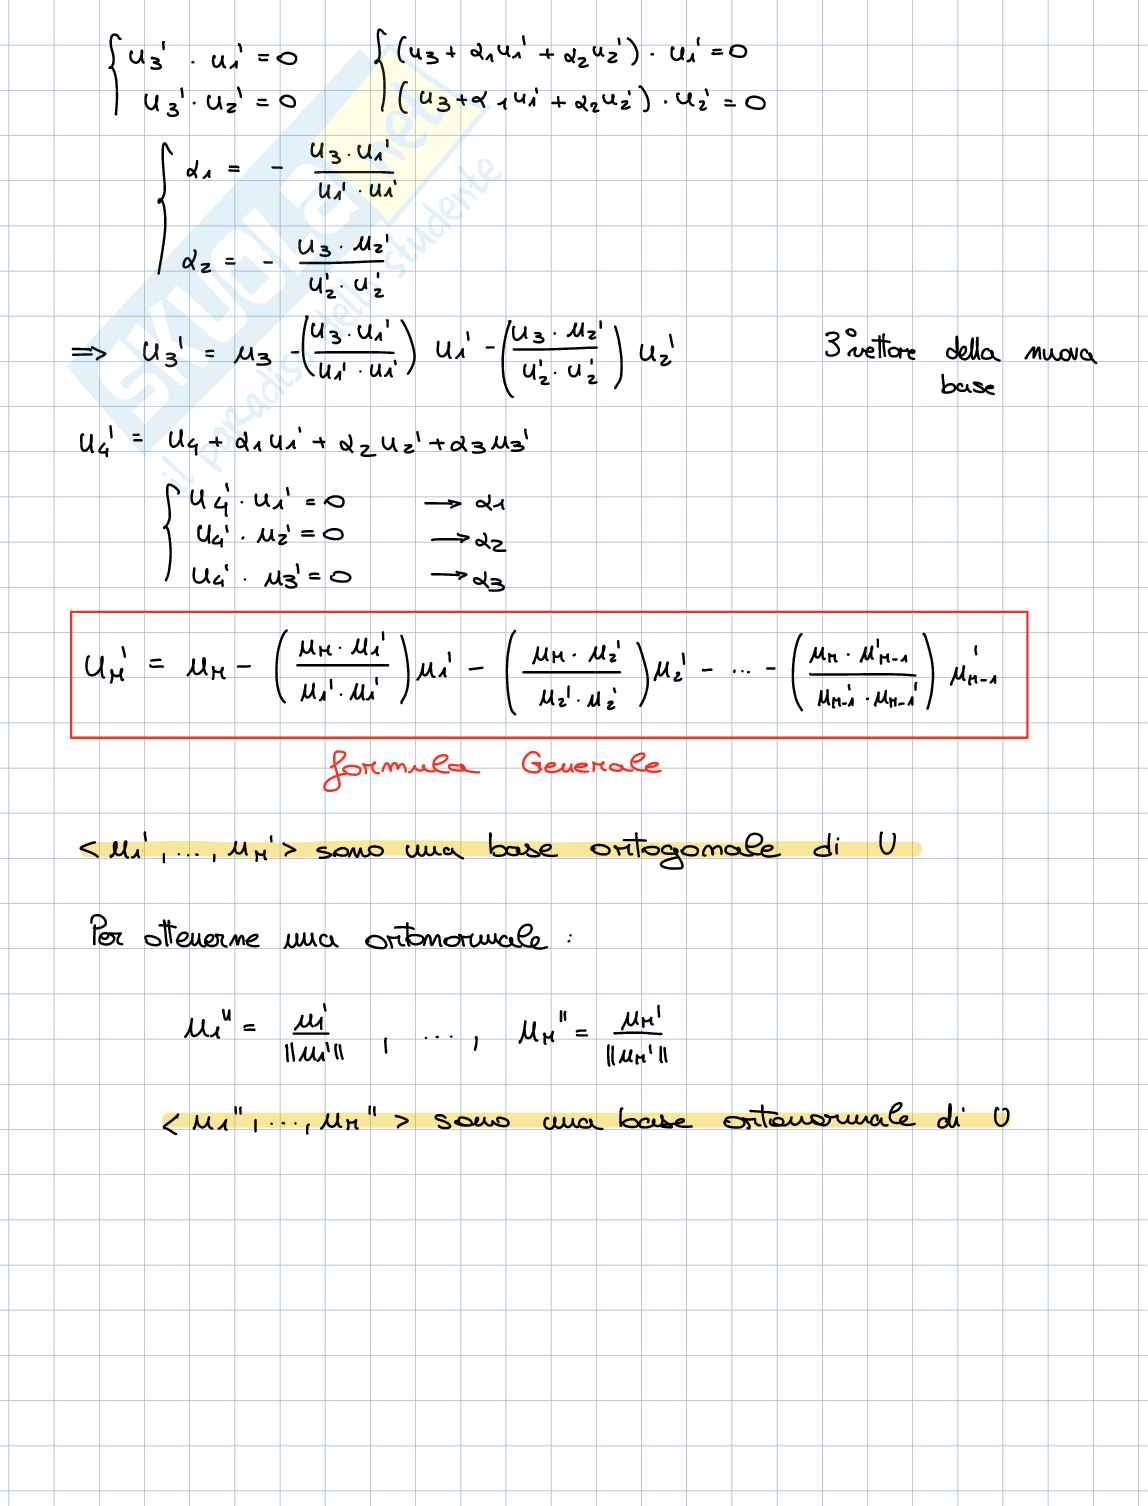 { u₃' · u₁' = 0    { (u₃ + α₁u₁' + α₂u₂') · u₁' = 0
u₃' · u₂' = 0    (u₃ + α₁u₁' + α₂u₂') · u₂' = 0
{ α₁ = - (u₃ · u₁') / (u₁' · u₁')
α₂ = - (u₃ · u₂') / (u₂' · u₂')
=> u₃' = u₃ - ((u₃ · u₁') / (u₁' · u₁')) u₁' - ((u₃ · u₂') / (u₂' · u₂')) u₂'    3° vettore della nuova
base
u₄' = u₄ + α₁u₁' + α₂u₂' + α₃u₃'
{ u₄' · u₁' = 0 → α₁
u₄' · u₂' = 0 → α₂
u₄' · u₃' = 0 → α₃
uₙ' = uₙ - ((uₙ · u₁') / (u₁' · u₁')) u₁' - ((uₙ · u₂') / (u₂' · u₂')) u₂' - ... - ((uₙ · u'ₙ₋₁) / (uₙ₋₁' · uₙ₋₁')) uₙ₋₁'
formula Generale
< u₁', ..., uₙ' > sono una base ortogonale di U
Per ottenerne una ortonormale :
u₁" = u₁' / ||u₁'|| , ... , uₙ" = uₙ' / ||uₙ'||
< u₁", ..., uₙ" > sono una base ortonormale di U
SKUOLA.net
il paradiso dello studente